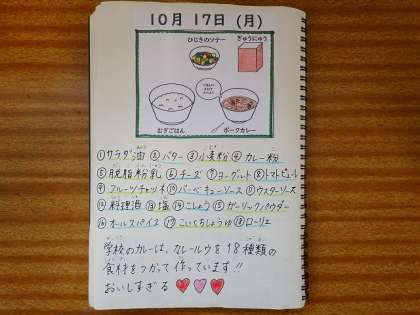 10月 17日 (月)
ひじきのソテー
ぎゅうにゅう
むぎごはん
ポークカレー
①サラダ油 ②バター ③小麦粉 ④カレー粉
⑤脱脂粉乳 ⑥チーズ ⑦ヨーグルト ⑧トマトピューレ
⑨フルーツチャツネ ⑩バーベキューソース ⑪ウスターソース
⑫料理酒 ⑬塩 ⑭こしょう ⑮ガーリックパウダー
⑯オールスパイス ⑰こいくちしょうゆ ⑱ローリエ
学校のカレーは、カレールウを18種類の
食材をつかって作っています!!
おいしすぎる